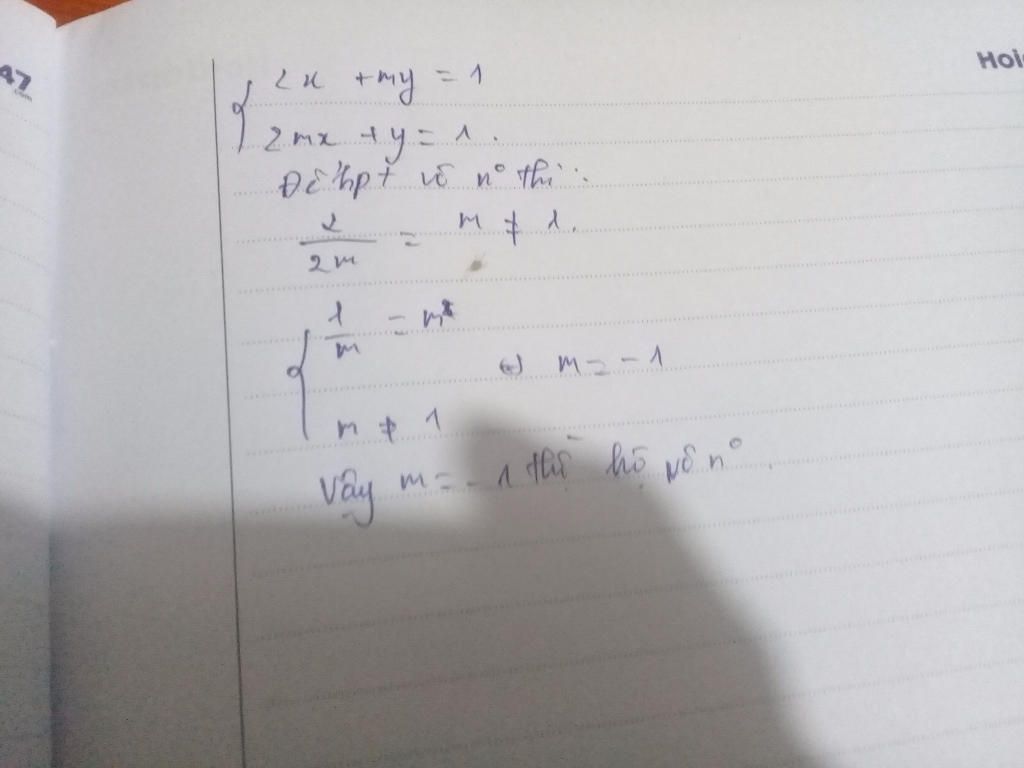 47
.com
Hoi
2x + my = 1
2mx + y = 1.
Để hpt vô n° thì:
2/2m = m ≠ 1.
1/m = m
⇔ m = -1
m ≠ 1
Vậy m = -1 thì hệ vô n°.